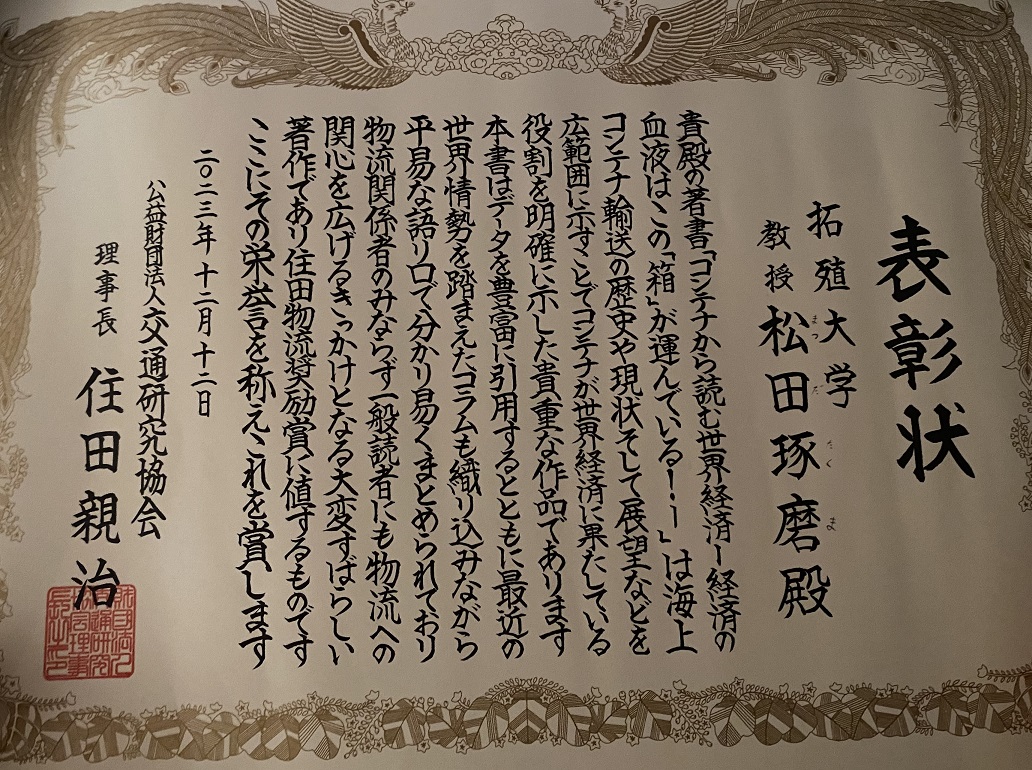 表彰状
拓殖大学
教授 松田琢磨殿
まつ だ たく ま
貴殿の著書「コンテナから読む世界経済ー経済の
血液はこの「箱」が運んでいる!ー」は海上
コンテナ輸送の歴史や現状そして展望などを
広範囲に示すことでコンテナが世界経済に果たしている
役割を明確に示した貴重な作品であります
本書はデータを豊富に引用するとともに最近の
世界情勢を踏まえたコラムも織り込みながら
平易な語り口で分かり易くまとめられており
物流関係者のみならず一般読者にも物流への
関心を広げるきっかけとなる大変すばらしい
著作であり住田物流奨励賞に値するものです
ここにその栄誉を称えこれを賞します
二〇二三年十二月十二日
公益財団法人交通研究協会
理事長 住田親治